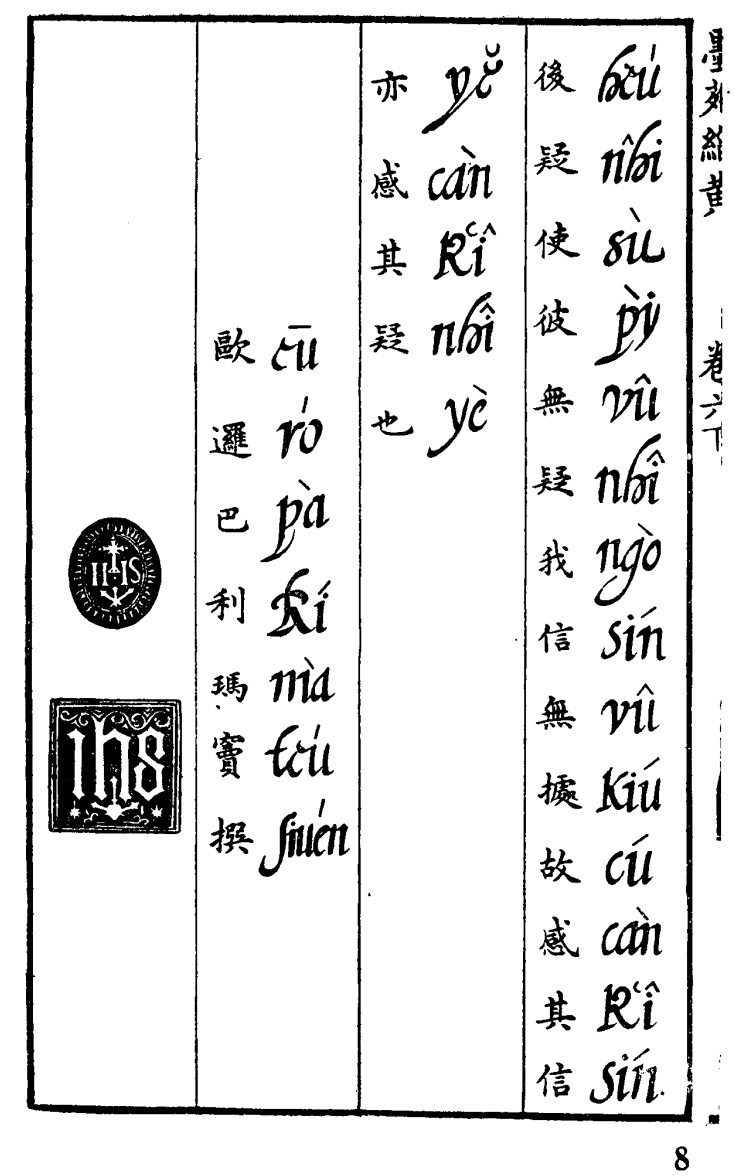 墨苑緇黃 卷六下
後疑使彼無疑我信無據故感其信
héu nhî sù pỳ vû nhî ngò sín vû kiú cú càn k‘î sín.
亦感其疑也
yĕ càn k‘î nhî yè
歐邏巴利瑪竇撰
ēu ró pà lí mà téu siuén
IHS
ihs
8